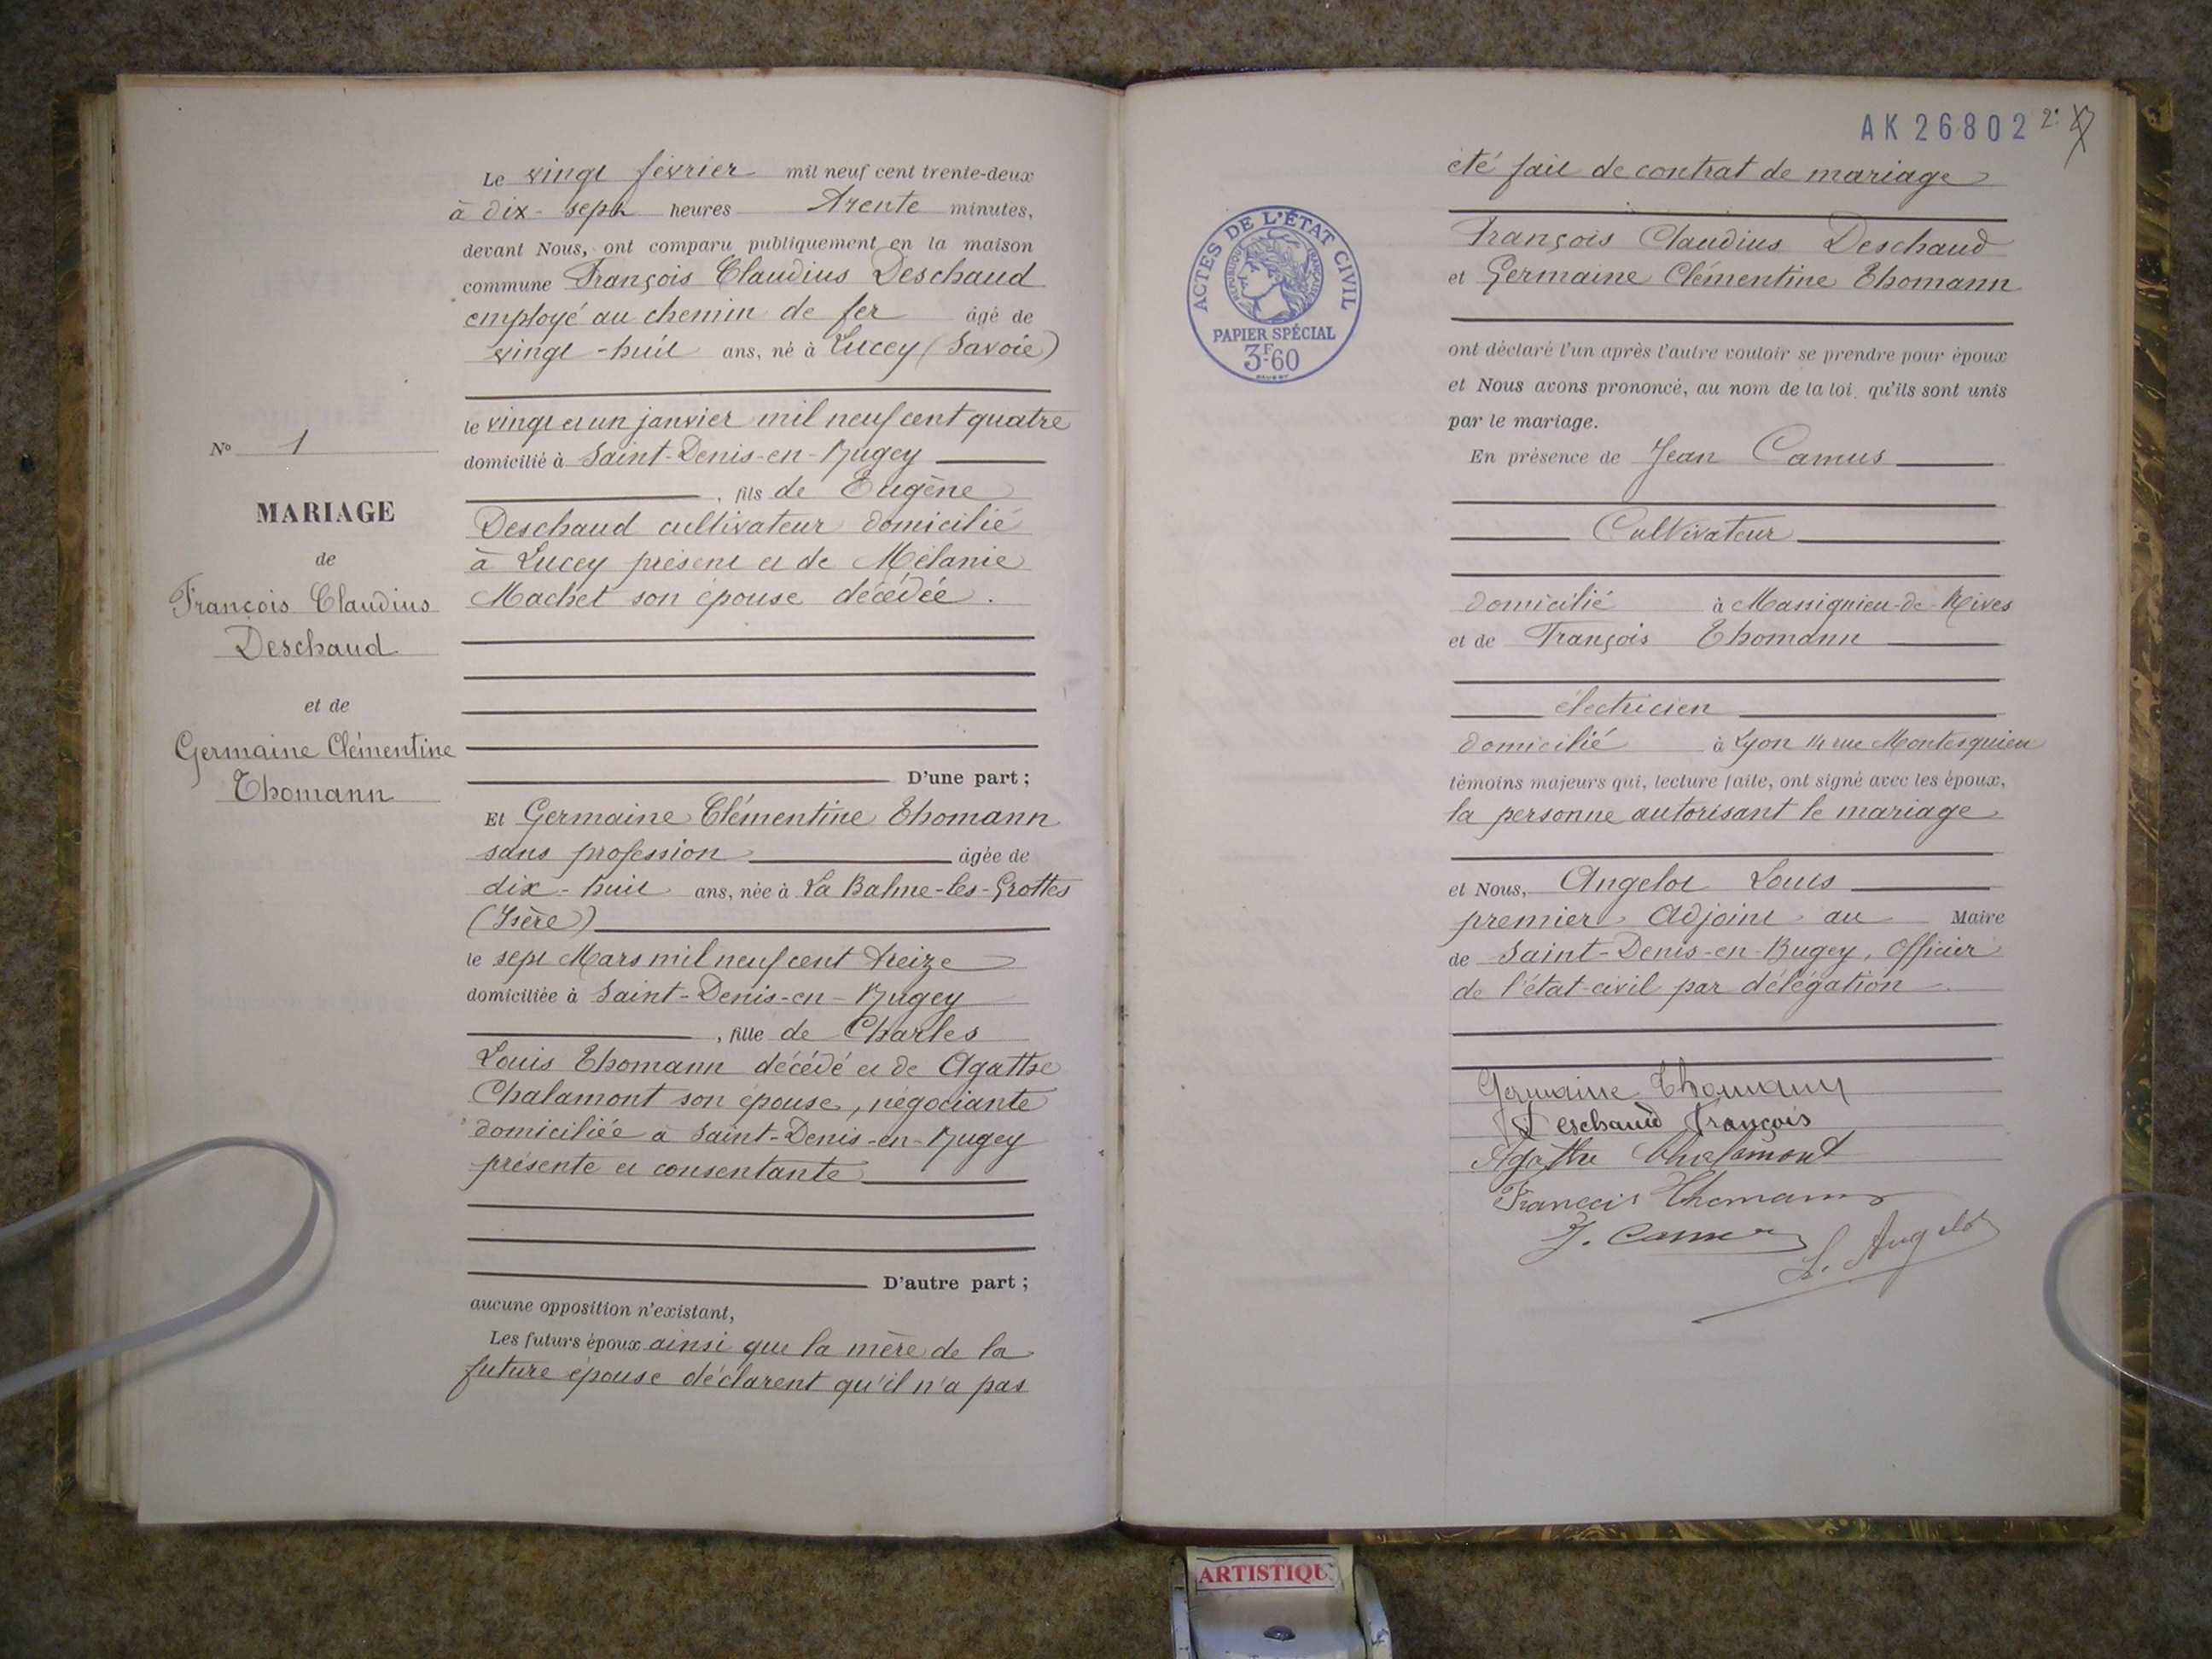 N° 1
MARIAGE
de
François Claudius
Deschaud
et de
Germaine Clémentine
Thomann
Le vingt février mil neuf cent trente-deux
à dix-sept heures trente minutes,
devant Nous, ont comparu publiquement en la maison
commune François Claudius Deschaud
employé au chemin de fer âgé de
vingt-huit ans, né à Lucey (Savoie)
le vingt et un janvier mil neuf cent quatre
domicilié à Saint-Denis-en-Bugey
, fils de Eugène
Deschaud cultivateur domicilié
à Lucey présent et de Mélanie
Machet son épouse décédée.
D'une part ;
Et Germaine Clémentine Thomann
sans profession âgée de
dix-huit ans, née à La Balme-les-Grottes
(Isère)
le sept Mars mil neuf cent treize
domiciliée à Saint-Denis-en-Bugey
, fille de Charles
Louis Thomann décédé et de Agathe
Chalamont son épouse, négociante
domiciliée à Saint-Denis-en-Bugey
présente et consentante
D'autre part ;
aucune opposition n'existant,
Les futurs époux ainsi que la mère de la
future épouse déclarent qu'il n'a pas
AK 26802
ACTES DE L'ÉTAT CIVIL
RÉPUBLIQUE FRANÇAISE
PAPIER SPÉCIAL
3F.60
été fait de contrat de mariage
François Claudius Deschaud
et Germaine Clémentine Thomann
ont déclaré l'un après l'autre vouloir se prendre pour époux
et Nous avons prononcé, au nom de la loi, qu'ils sont unis
par le mariage.
En présence de Jean Camus
Cultivateur
domicilié à Massignieu-de-Rives
et de François Thomann
électricien
domicilié à Lyon 14 rue Montesquieu
témoins majeurs qui, lecture faite, ont signé avec les époux,
la personne autorisant le mariage
et Nous, Angelot Louis
premier Adjoint au Maire
de Saint-Denis-en-Bugey, Officier
de l'état-civil par délégation.
Germaine Thomann
Deschaud François
Agathe Chalamont
Francois Thomann
J. Camus
L. Angelot
ARTISTIQU